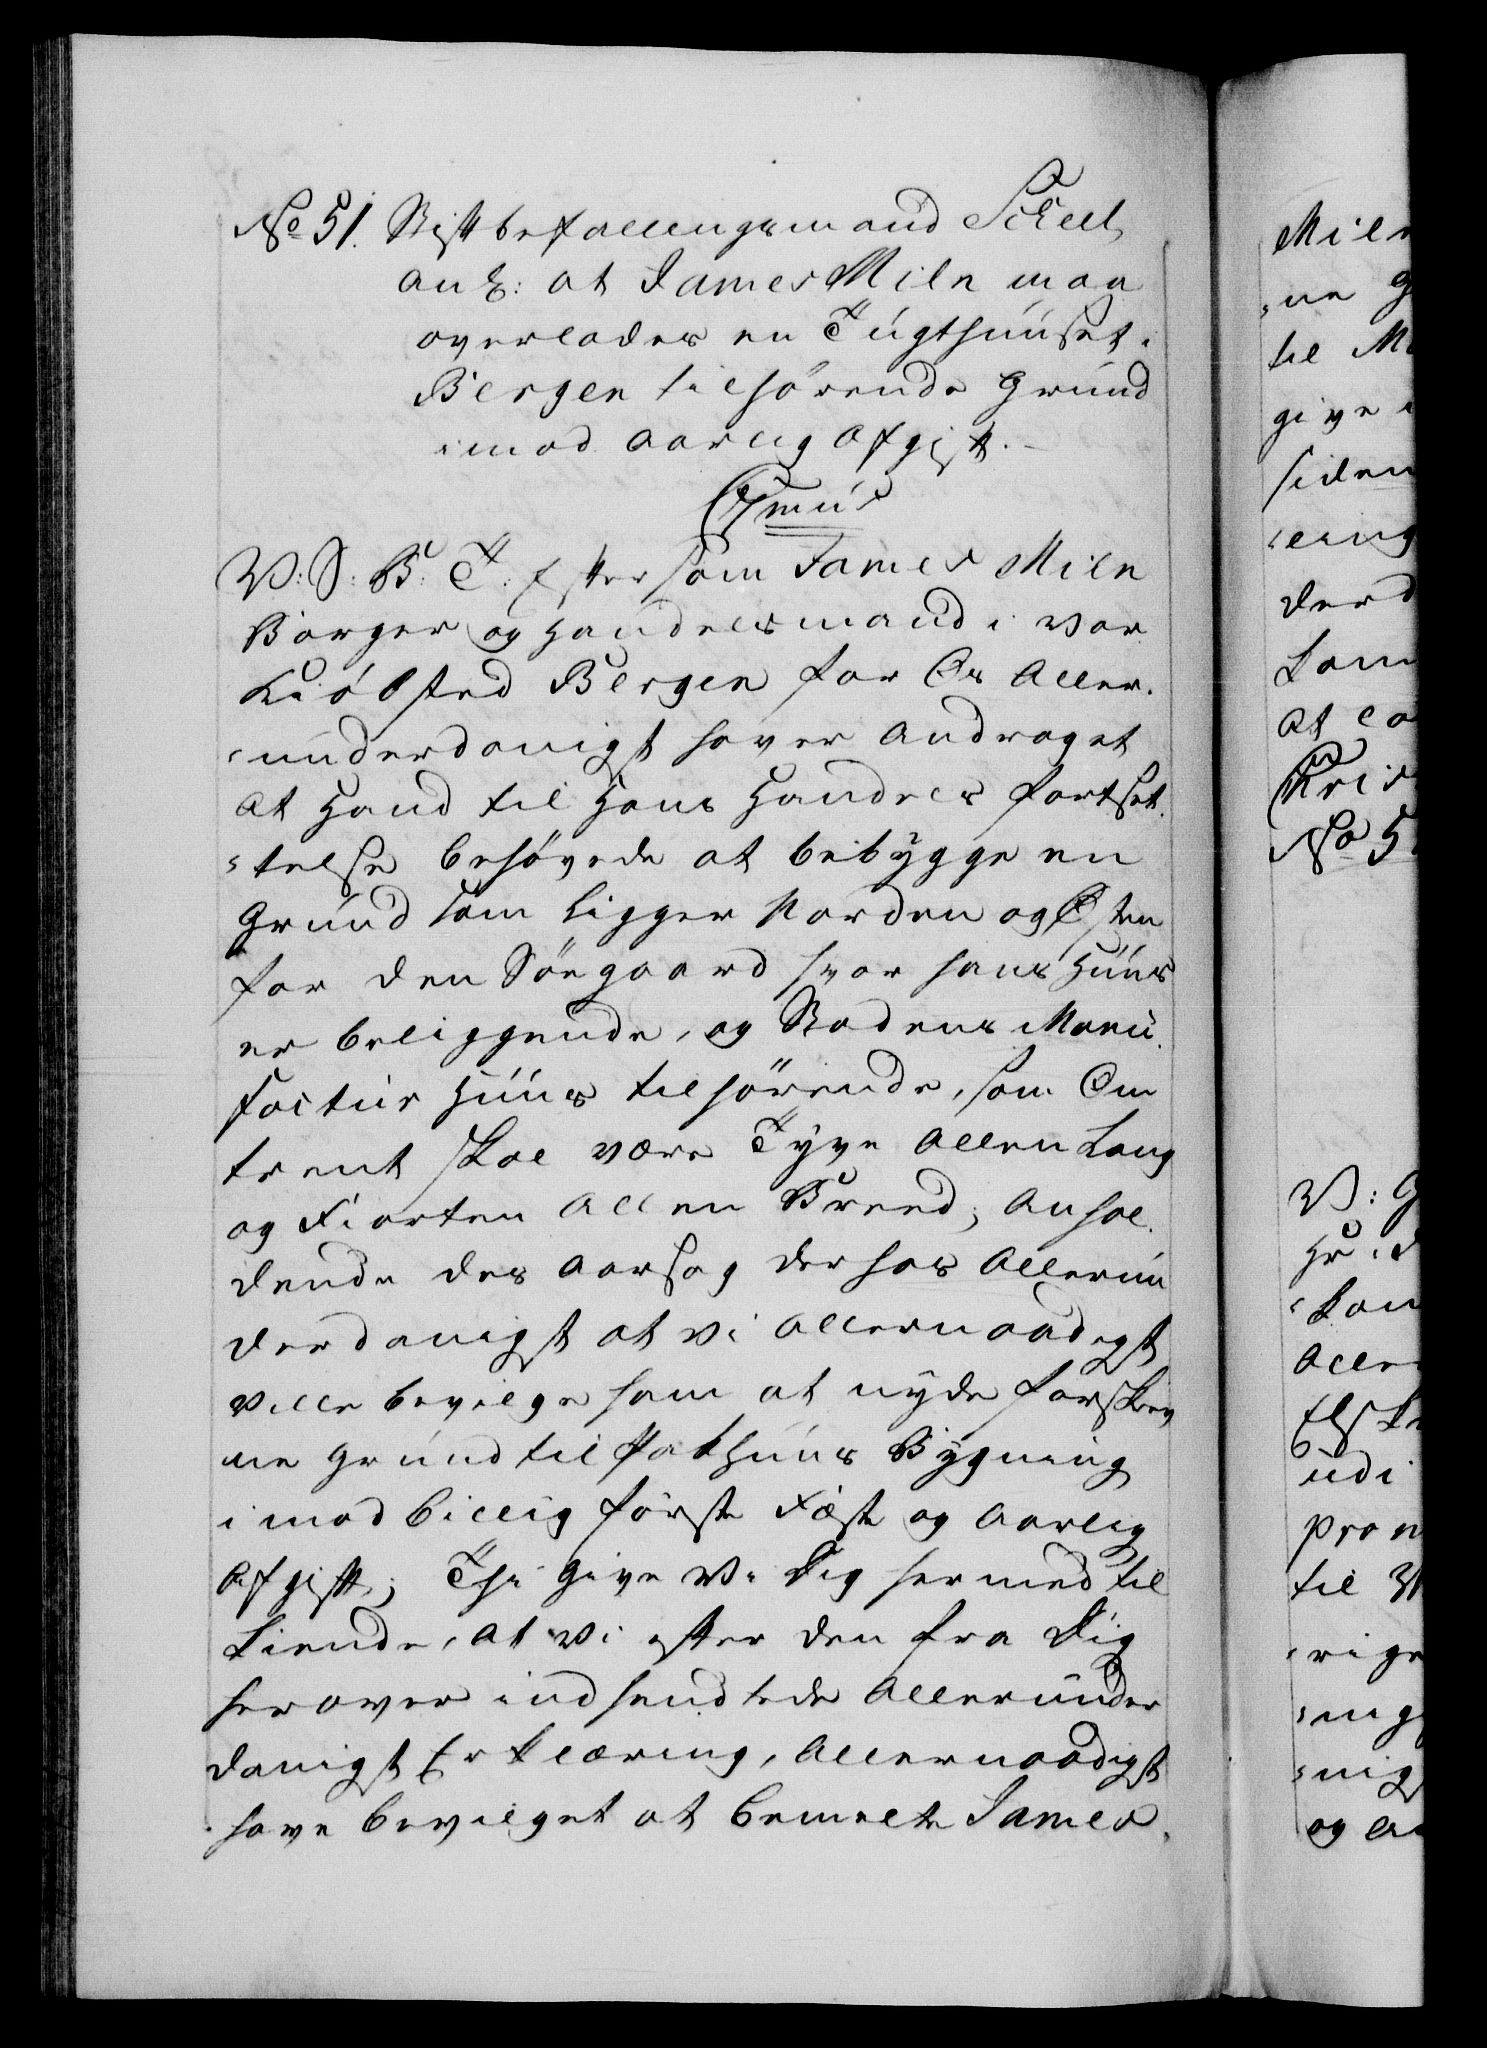 No 51. Stiftbefallingsmand Scheel
anl: at James Miln maa
overlades en Tugthuuset i
Bergen tilhörende Grund
imod aarlig Afgift.
V: S: B: T: Eftersom James Miln
Borger og Handelsmand i vor
Kiöbsted Bergen for Os Aller-
underdanigst haver andraget
at Hand til Hans Handels fortset-
telse behövede at bebygge en
Grund som ligger Norden og Østen
for den Söegaard hvor hans Huus
er beliggende, og Stadens Manu-
factur Huus tilhörende, som Om
trent skal være Tyve Allen Lang
og Fiorten Allen Breed; Anhol-
dende des Aarsag derhos Allerun
derdanigst at vi allernaadigst
ville bevilge ham at nyde forskrev
ne Grund til Pakhuus Bygning
imod billig förste Fæste og aarlig
Afgift; Thi give Vi Dig hermed til
kiende, at Vi efter den fra Dig
herover indsendtede Allerunder
danigst Erklæring, Allernaadigst
have bevilget at bemelte James
Miln
ne G
til M
give
siden
ling
derd
Kom
at la
No 5
V: G
Hr: d
Kon
Aller
Elske
udi
pron
til 31
rige
ing
nig
og A